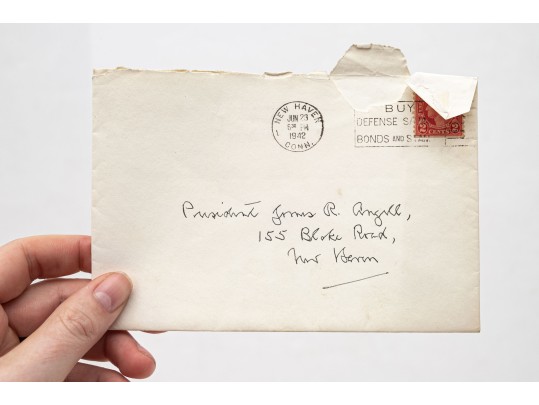 NEW HAVEN
1
JUN 23
PM
1942
CONN.
BUY
DEFENSE
BONDS AND
2 CENTS 2
President James R. Angell,
155 Blake Road,
New Haven